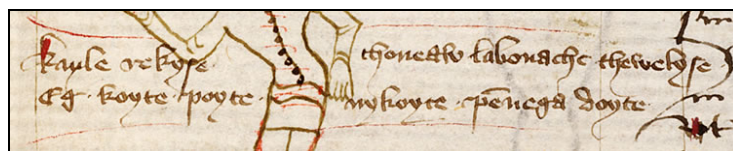 kaule rekyse thoneaw labonache thewelyse
Eg koyte poyte nykoyte pēnega doyte